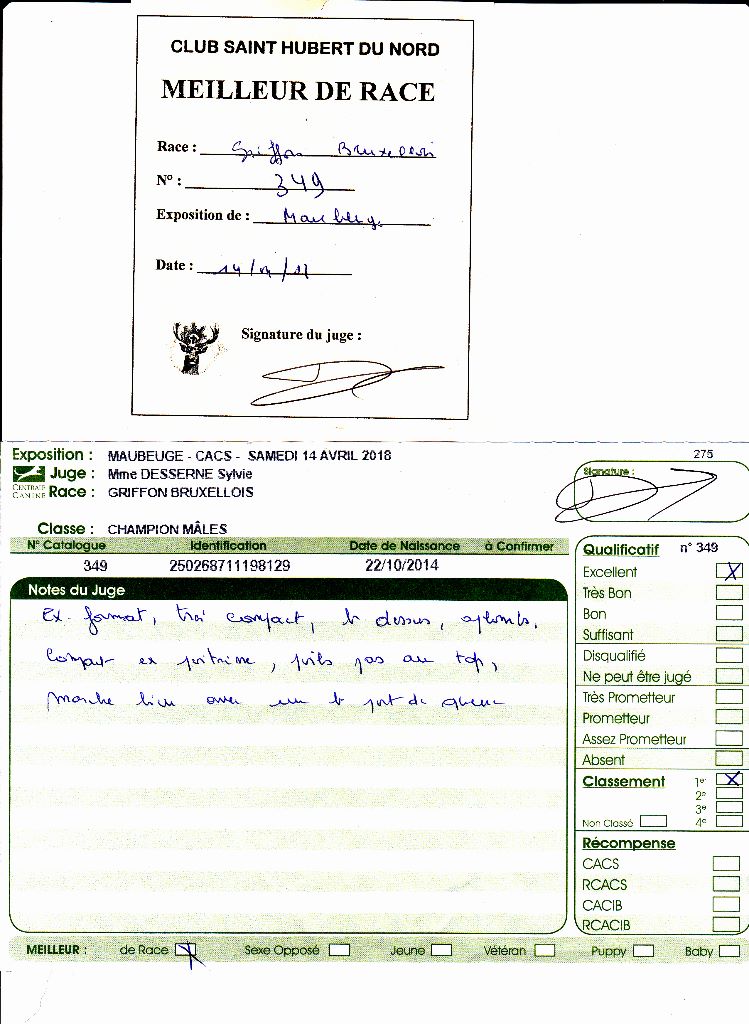 CLUB SAINT HUBERT DU NORD
MEILLEUR DE RACE
Race : Griffon Bruxellois
N° : 349
Exposition de : Maubeuge
Date : 14/4/18
Signature du juge :
Exposition : MAUBEUGE - CACS - SAMEDI 14 AVRIL 2018
275
Juge : Mme DESSERNE Sylvie
Signature :
CENTRALE CANINE
Race : GRIFFON BRUXELLOIS
Classe : CHAMPION MÂLES
N° Catalogue Identification Date de Naissance à Confirmer
349 250268711198129 22/10/2014
Notes du Juge
Ex. format, très compact, b dessus, aplombs,
compact ex poitrine, poils pas au top,
marche bien avec un b port de queue
Qualificatif n° 349
Excellent X
Très Bon
Bon
Suffisant
Disqualifié
Ne peut être jugé
Très Prometteur
Prometteur
Assez Prometteur
Absent
Classement 1er X
2e
3e
Non Classé 4e
Récompense
CACS
RCACS
CACIB
RCACIB
MEILLEUR : de Race X Sexe Opposé Jeune Vétéran Puppy Baby